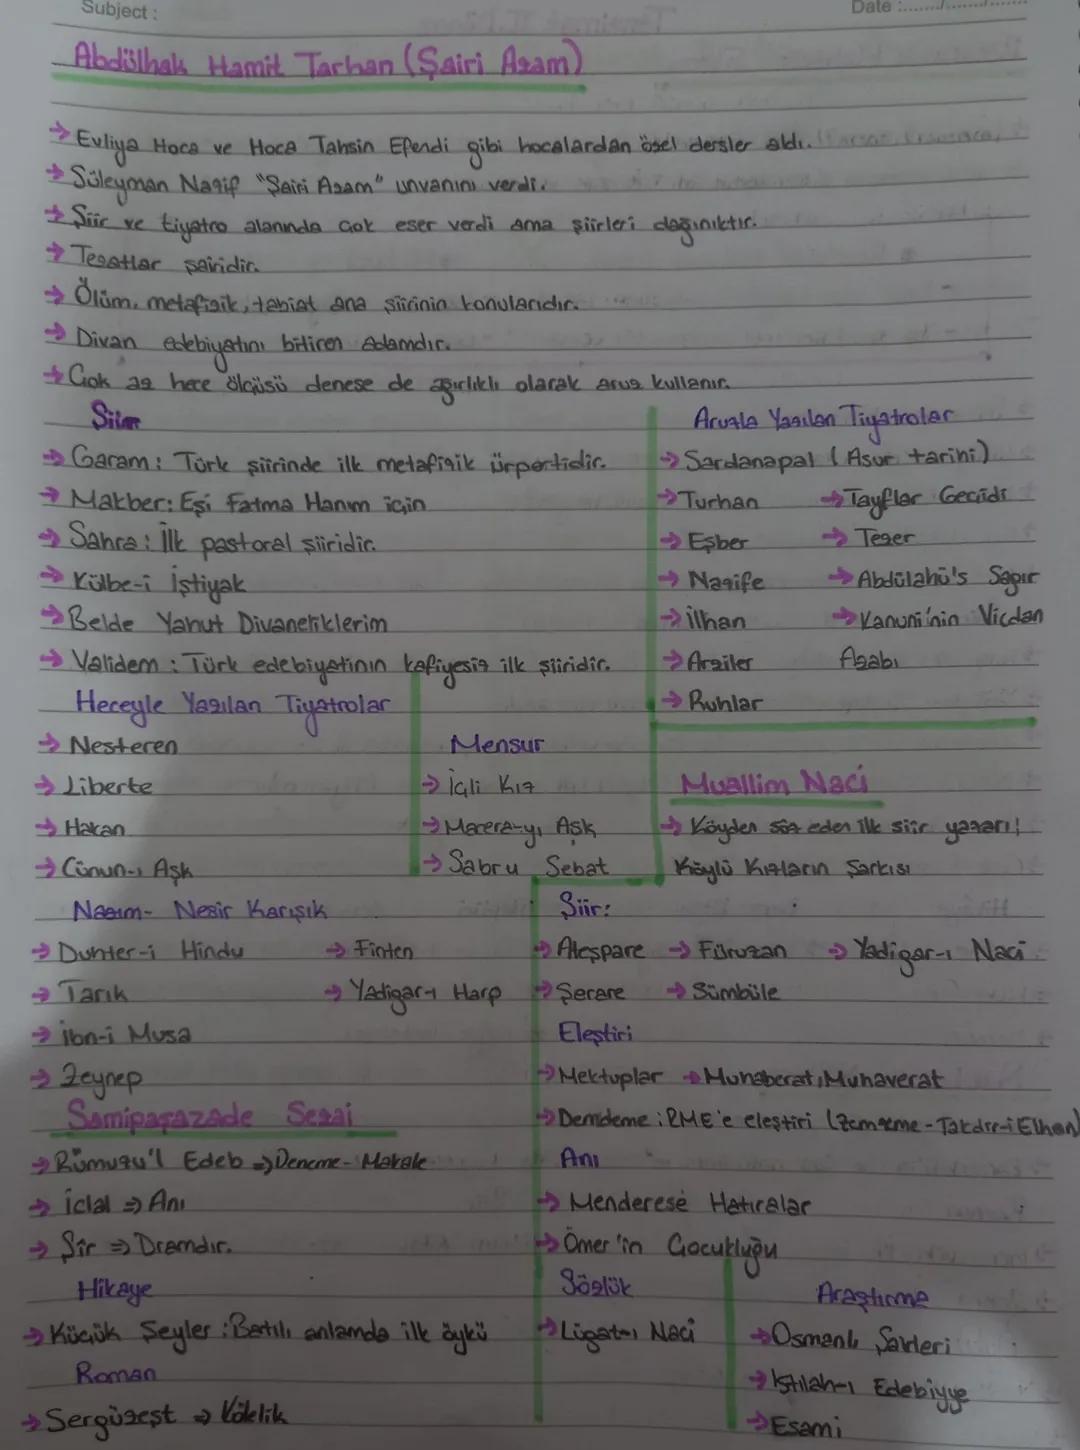 Subject :
Date :
Abdülhak Hamit Tarhan (Şairi Azam)
→ Evliya Hoca ve Hoca Tahsin Efendi gibi hocalardan özel dersler aldı.
→ Süleyman Nazif "Şairi Azam" unvanını verdi.
→ Şiir ve tiyatro alanında çok eser verdi ama şiirleri dağınıktır.
→ Tezatlar şairidir.
→ Ölüm, metafizik, tabiat ana şiirinin konularıdır.
→ Divan edebiyatını bitiren adamdır.
→ Çok az hece ölçüsü denese de ağırlıklı olarak aruz kullanır.
Şiir
→ Garam: Türk şiirinde ilk metafizik ürpertidir.
→ Makber: Eşi Fatma Hanım için
→ Sahra: İlk pastoral şiiridir.
→ Külbe-i İştiyak
→ Belde Yahut Divaneliklerim
→ Validem: Türk edebiyatının kafiyesiz ilk şiiridir.
Aruzla Yazılan Tiyatrolar
→ Sardanapal (Asur tarihi)
→ Turhan → Tayflar Geçidi
→ Eşber → Tezer
→ Nazife → Abdülahü's Sagir
→ İlhan → Kanuni'nin Vicdan
→ Arziler Azabı
→ Ruhlar
Heceyle Yazılan Tiyatrolar
→ Nesteren
→ Liberte
→ Hakan
→ Cünun-ı Aşk
Mensur
→ İçli Kız
→ Macera-yı Aşk
→ Sabru Sebat
Nazım- Nesir Karışık
→ Duhter-i Hindu → Finten
→ Tarık → Yadigar-ı Harp
→ İbn-i Musa
→ Zeynep
Samipaşazade Sezai
→ Rümuzu'l Edeb => Deneme- Makale
→ İclal => Anı
→ Şîr => Dramdır.
Hikaye
→ Küçük Şeyler: Batılı anlamda ilk öykü
Roman
→ Sergüzeşt => Kölelik
Muallim Naci
→ Köyden söz eden ilk şiir yazarı!
Köylü Kızların Şarkısı
Şiir:
→ Ateşpare → Füruzan → Yadigar-ı Naci
→ Şerare → Sümbüle
Eleştiri
→ Mektuplar → Muhaberat, Muhaverat
→ Demdeme: RME'e eleştiri (Zemzeme-Takdir-i Elhan)
Anı
→ Menderese Hatıralar
→ Ömer'in Çocukluğu
Sözlük
→ Lügat-ı Naci
Araştırma
→ Osmanlı Şairleri
→ Istılah-ı Edebiyye
→ Esami